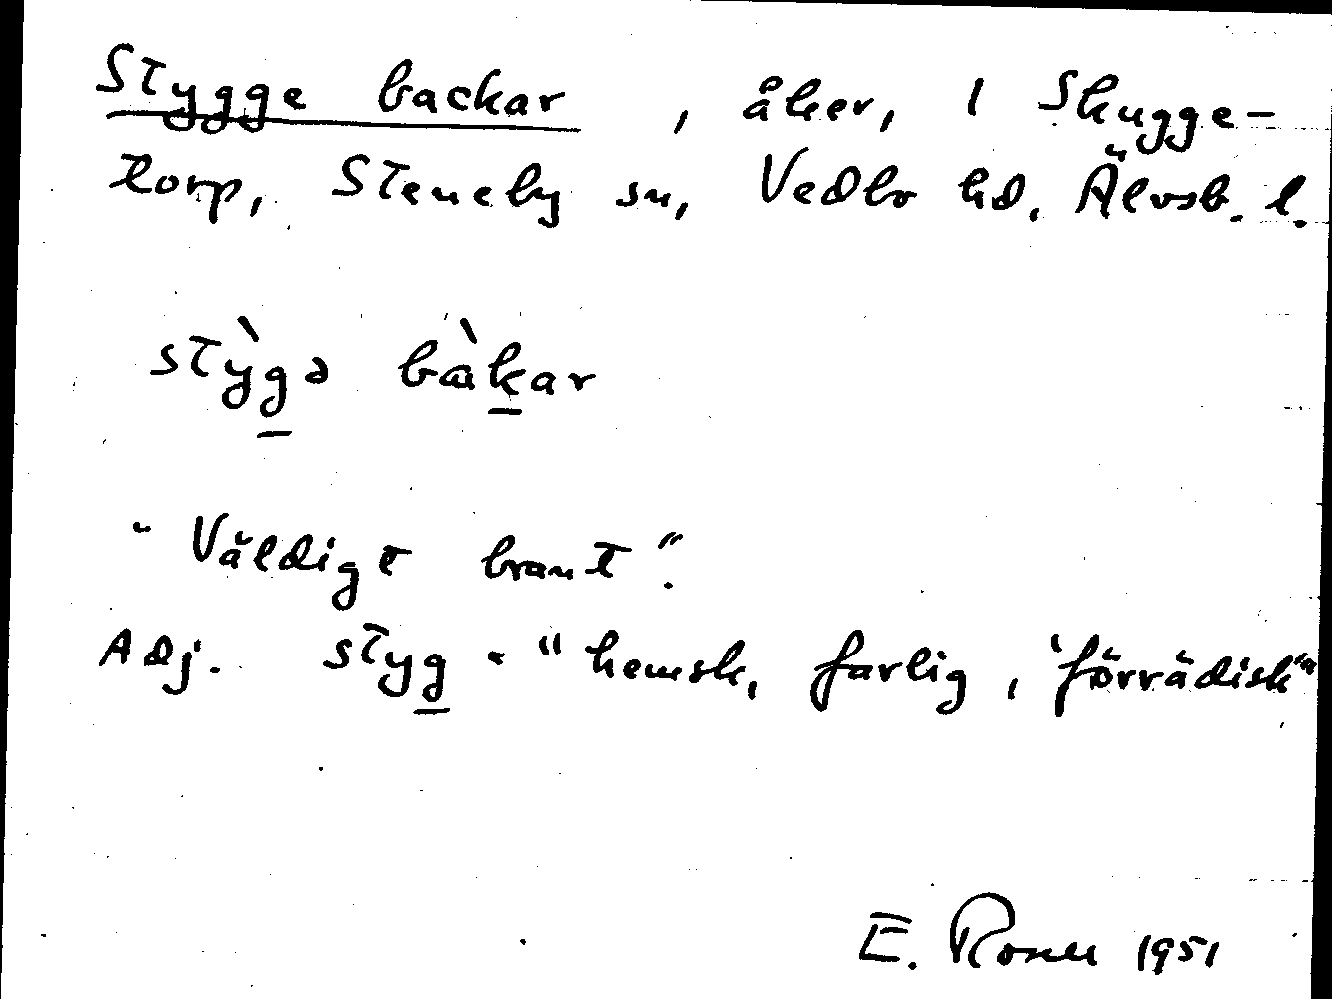 Stygge backar, åker, 1 Skugge-
torp, Steneby sn, Vedbo hd. Älvsb. l.
stỳgə bàkar
"Väldigt brant".
Adj. styg = "hemsk, farlig, 'förrädisk'"
E. Rosell 1951